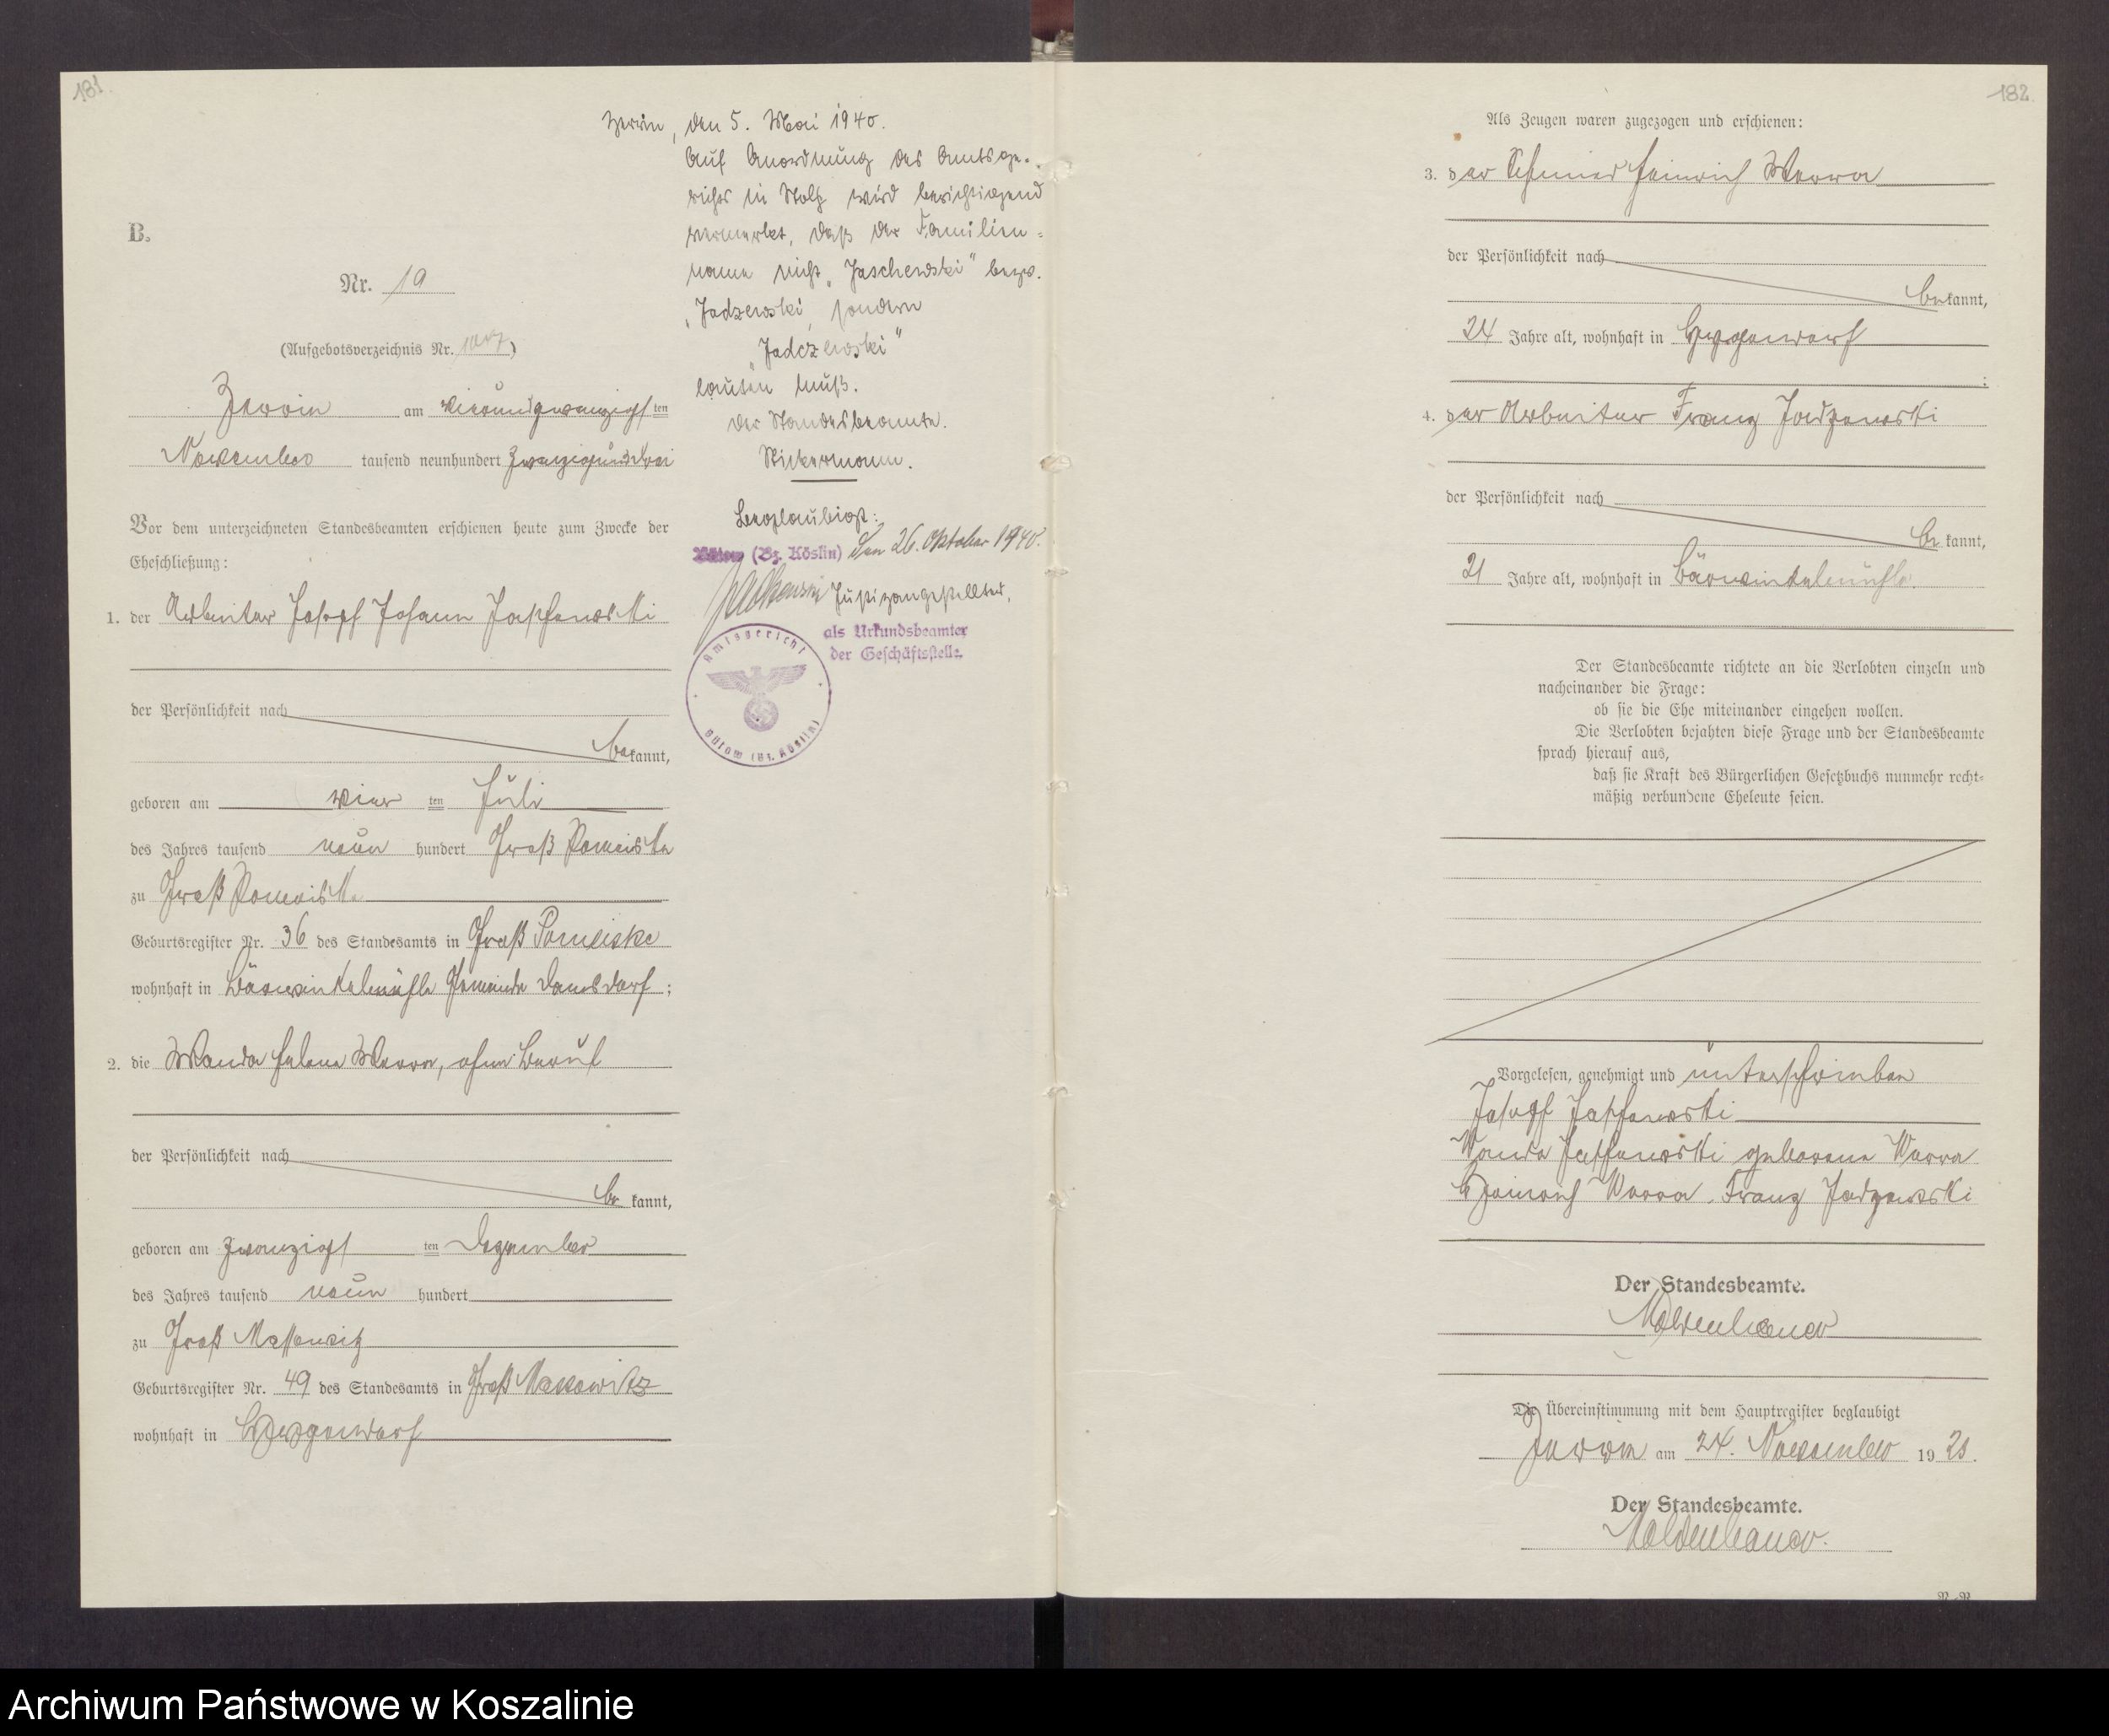 181
B.
Nr. 19
(Aufgebotsverzeichnis Nr. )
Zerrin am vierundzwanzigsten
November tausend neunhundert zwanzigunddrei
Vor dem unterzeichneten Standesbeamten erschienen heute zum Zwecke der
Eheschließung:
1. der Arbeiter Josef Johann Jaschewski
der Persönlichkeit nach
bekannt,
geboren am vier ten Juli
des Jahres tausend neun hundert Groß Pomeiske
zu Groß Pomeiske
Geburtsregister Nr. 36 des Standesamts in Groß Pomeiske
wohnhaft in Bärwinkelmühle Gemeinde Damsdorf;
2. die Wanda Helene Warra, ohne Beruf
der Persönlichkeit nach
be kannt,
geboren am zwanzigst ten Dezember
des Jahres tausend neun hundert
zu Groß Massowitz
Geburtsregister Nr. 49 des Standesamts in Groß Massowitz
wohnhaft in Hygendorf
Zerrin, den 5. Mai 1940.
Auf Anordnung des Amtsge-
richts in Stolp wird berichtigend
vermerkt, daß der Familien-
name nicht „Jaschewski" bezw.
„Jadzewski, sondern
„Jadczewski"
lauten muß.
Der Standesbeamte.
Stickermann.
Beglaubigt:
Bütow (Bz. Köslin) Den 26. Oktober 1940.
Justizangestellter,
als Urkundsbeamter
der Geschäftsstelle.
Amtsgericht
Bütow (Bz. Köslin)
182
Als Zeugen waren zugezogen und erschienen:
3. der Schmied Heinrich Warra
der Persönlichkeit nach
bekannt,
24 Jahre alt, wohnhaft in Hygendorf
;
4. der Arbeiter Franz Jadzewski
der Persönlichkeit nach
be kannt,
21 Jahre alt, wohnhaft in Bärwinkelmühle.
Der Standesbeamte richtete an die Verlobten einzeln und
nacheinander die Frage:
ob sie die Ehe miteinander eingehen wollen.
Die Verlobten bejahten diese Frage und der Standesbeamte
sprach hierauf aus,
daß sie Kraft des Bürgerlichen Gesetzbuchs nunmehr recht-
mäßig verbundene Eheleute seien.
Vorgelesen, genehmigt und unterschrieben
Josef Jaschewski
Wanda Jaschewski geborene Warra
Heinrich Warra. Franz Jadzewski
Der Standesbeamte.
Moldenhauer
Die Übereinstimmung mit dem Hauptregister beglaubigt
Zerrin am 24. November 19 23.
Der Standesbeamte.
Moldenhauer.
Archiwum Państwowe w Koszalinie